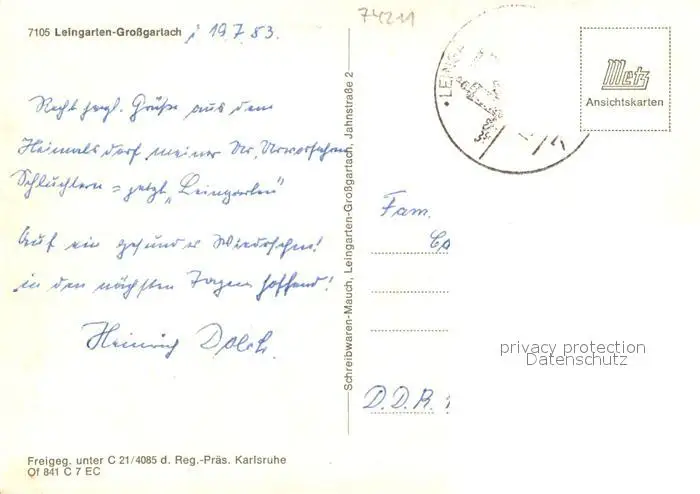 7105 Leingarten-Großgartach, 19.7.83.
Recht herzl. Grüße aus dem
Heimatsdorf meiner Ur, Urvorfahren
Schluchtern = jetzt „Leingarten"
Auf ein gesundes Wiedersehen!
in den nächsten Tagen hoffend!
Heinrich Dolch
Freigeg. unter C 21/4085 d. Reg.-Präs. Karlsruhe
Of 841 C 7 EC
Schreibwaren-Mauch, Leingarten-Großgartach, Jahnstraße 2
74211
Metz
Ansichtskarten
Fam.
privacy protection
Datenschutz
D.D.R.